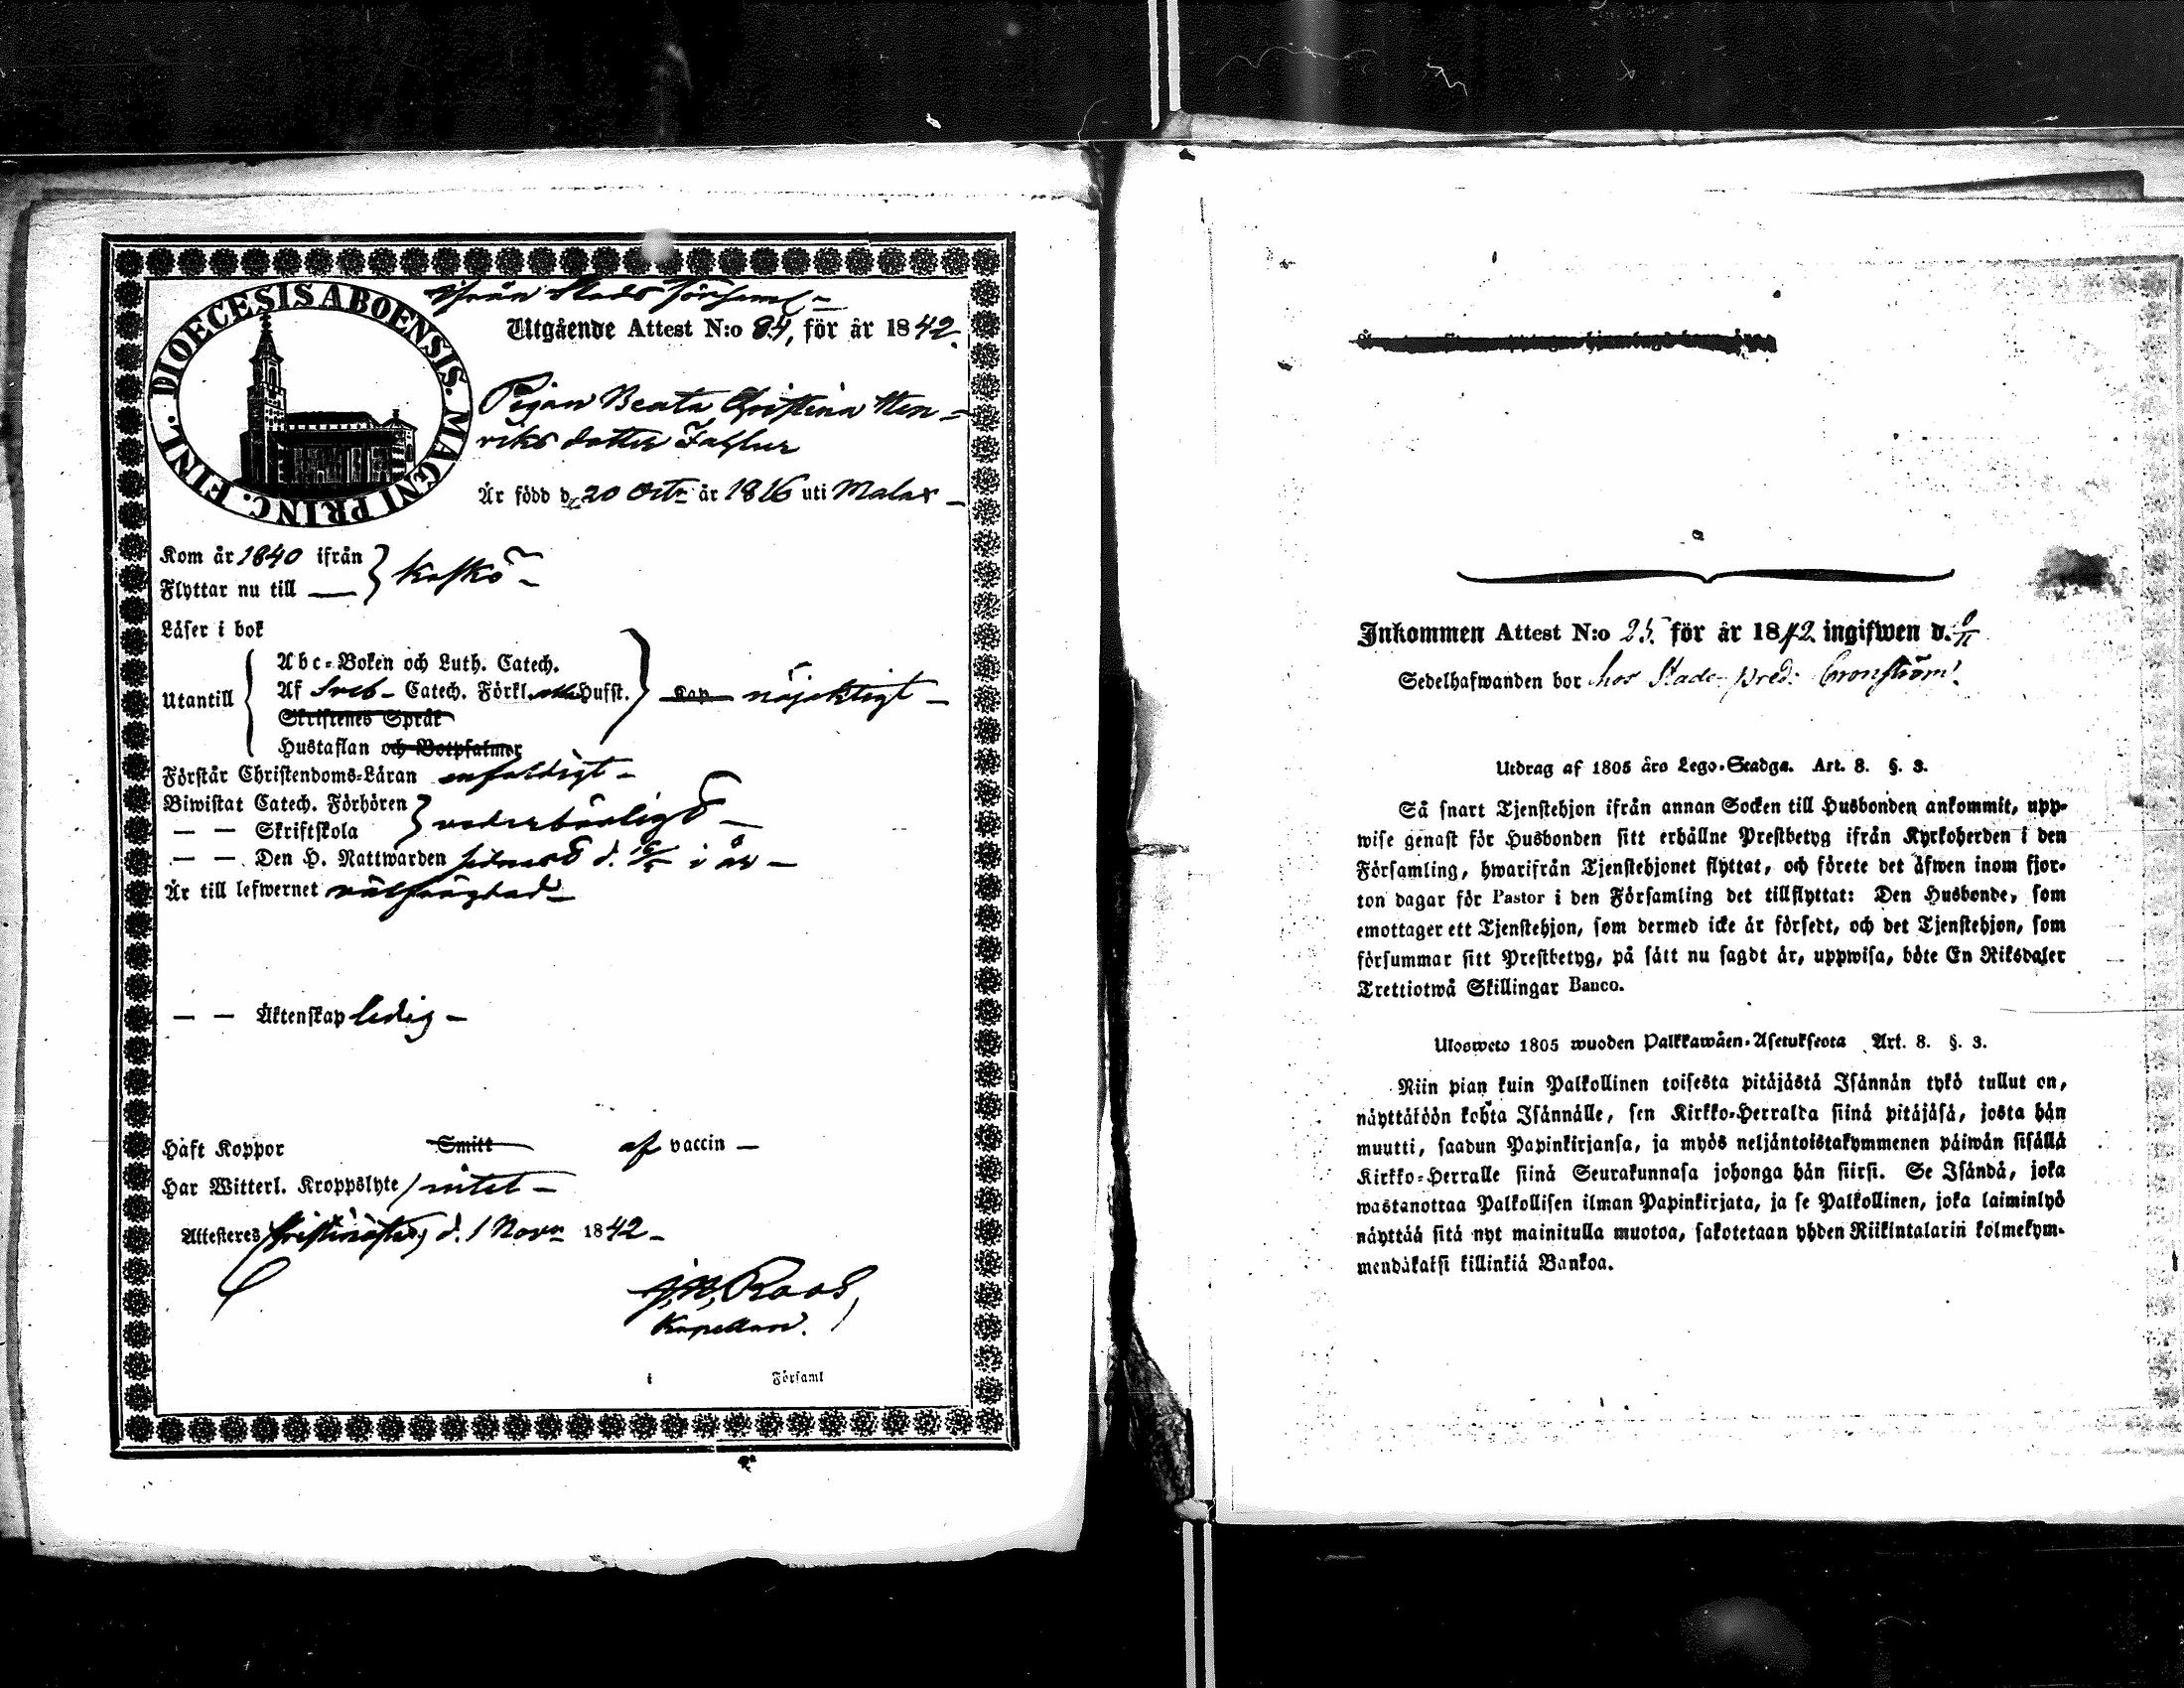 ifrån Stads församl
DIOECESIS ABOENSIS. MAGNI PRINC. FINL.
Utgående Attest N:o 84, för år 1842.
Pigan Beata Christina Hen-
riks dotter
Är född d. 20 Octr år 1816 uti Malax
Kom år 1840 ifrån
Flyttar nu till —
Kaskö
Läser i bok
Utantill
Abc-Boken och Luth. Catech.
Af Sveb- Catech. Förkl. Hufst.
Skriftenes Språk
Hustaflan och Botpsalmer
Cap nöjaktigt —
Förstår Christendoms-Läran enfaldigt —
Biwistat Catech. Förhören
— — Skriftskola
vederbörligt —
— — Den H. Nattwarden sednast d. i år —
Är till lefwernet välfrägdad —
— — Äktenskap ledig —
Haft Koppor Smitt af vaccin —
Har Witterl. Kroppslyte intet —
Attesteres Christinestad d. 1 Novr 1842 —
Roos,
Kapellan.
i Församl
Inkommen Attest N:o 25. för år 1842 ingifwen d.
Sedelhafwanden bor hos Stads Pred: Cronström.
Utdrag af 1805 års Lego-Stadga. Art. 8. §. 3.
Så snart Tjenstehjon ifrån annan Socken till Husbonden ankommit, upp-
wise genast för Husbonden sitt erhållne Prestbetyg ifrån Kyrkoherden i den
Församling, hwarifrån Tjenstehjonet flyttat, och förete det äfwen inom fjor-
ton dagar för Pastor i den Församling det tillflyttat: Den Husbonde, som
emottager ett Tjenstehjon, som dermed icke är försedt, och det Tjenstehjon, som
försummar sitt Prestbetyg, på sätt nu sagdt är, uppwisa, böte En Riksdaler
Trettiotwå Skillingar Banco.
Ulosweto 1805 wuoden Palkkawäen-Asetuksesta Art. 8. §. 3.
Niin pian kuin Palkollinen toisesta pitäjästä Isännän tykö tullut on,
näyttäköön kohta Isännälle, sen Kirkko-Herralta siinä pitäjäsä, josta hän
muutti, saadun Papinkirjansa, ja myös neljäntoistakymmenen päiwän sisällä
Kirkko-Herralle siinä Seurakunnasa johonga hän siirsi. Se Isändä, joka
wastanottaa Palkollisen ilman Papinkirjata, ja se Palkollinen, joka laiminlyö
näyttää sitä nyt mainitulla muotoa, sakotetaan yhden Riikintalarin kolmekym-
mendäkaksi killinkiä Bankoa.